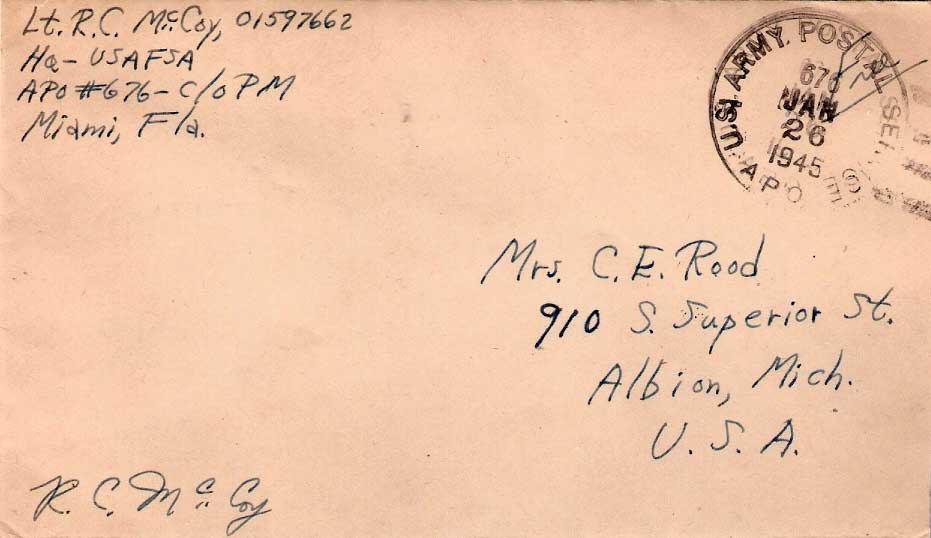 Lt. R.C. McCoy, 01597662
Hq- USAFSA
APO #676- c/o PM
Miami, Fla.
U.S. ARMY POSTAL SERVICE
676
JAN
26
1945
APO
Mrs. C.E. Rood
910 S. Superior St.
Albion, Mich.
U.S.A.
R. C. McCoy